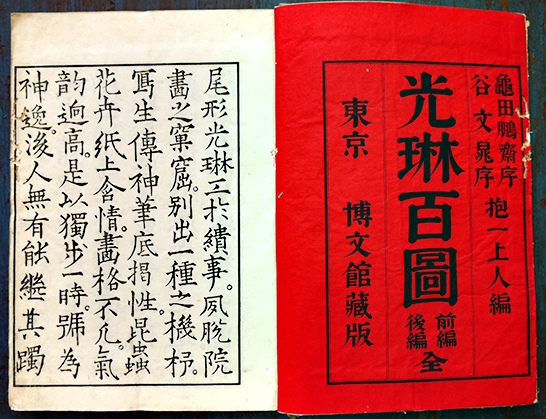 龜田鵬齋序
谷文晁序
抱一上人編
光琳百圖
前編
後編
全
東京 博文館藏版
尾形光琳工扵繢事。夙脫院
畫之窠窟。别出一種之機杼。
寫生傳神筆底揭性。昆蟲
花卉紙上含情。畫格不凢氣
韵逈高。是以獨步一時。號為
神逸。後人無有能繼其躅